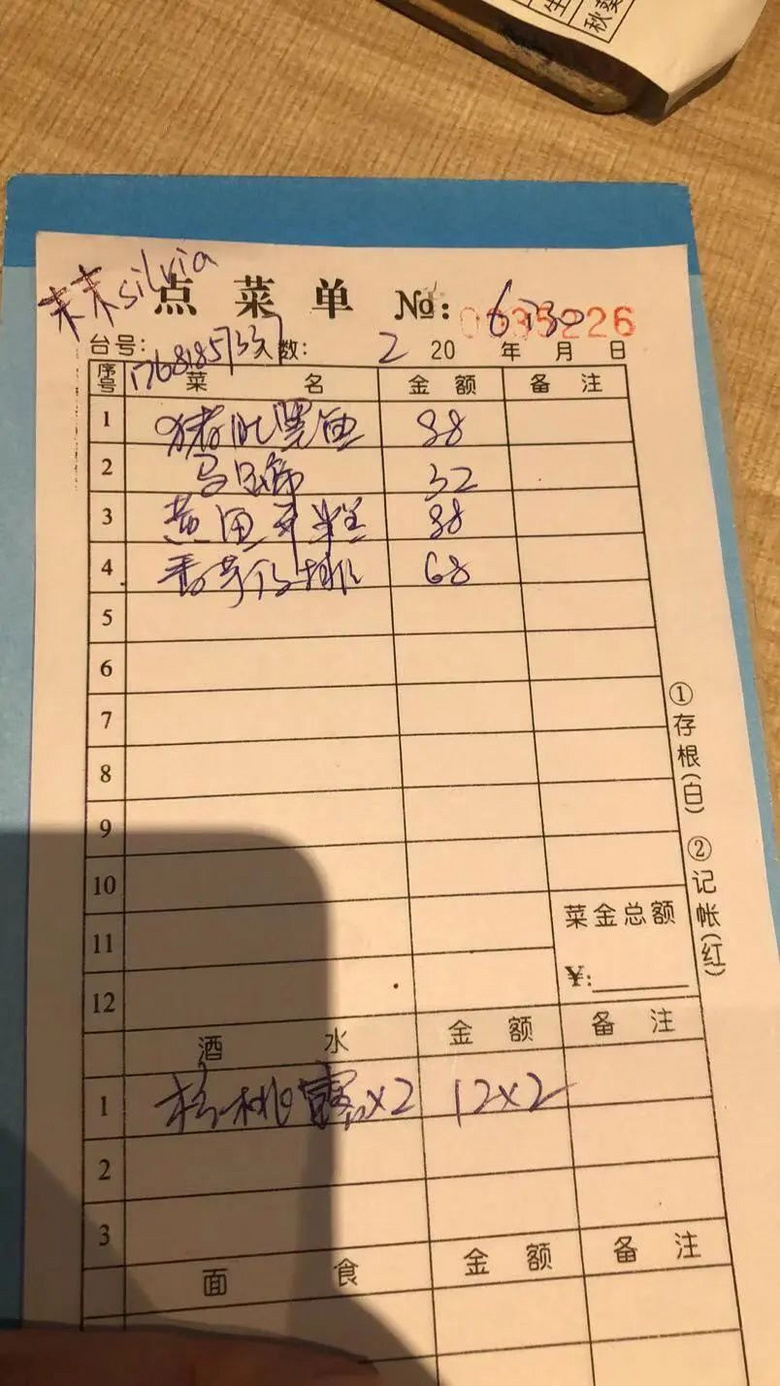 秋葵
末末silvia
点菜单 №: 0035226
6:30
台号: 数: 2 20 年 月 日
序号 菜名 金额 备注
1 猪肚黑鱼 88
2 马兰头 32
3 黄鱼年糕 88
4 香芋仔排 68
5
6
7
8
9
10
11
12
菜金总额
¥:
酒水 金额 备注
1 核桃露x2 12x2
2
3
面食 金额 备注
①存根(白) ②记帐(红)